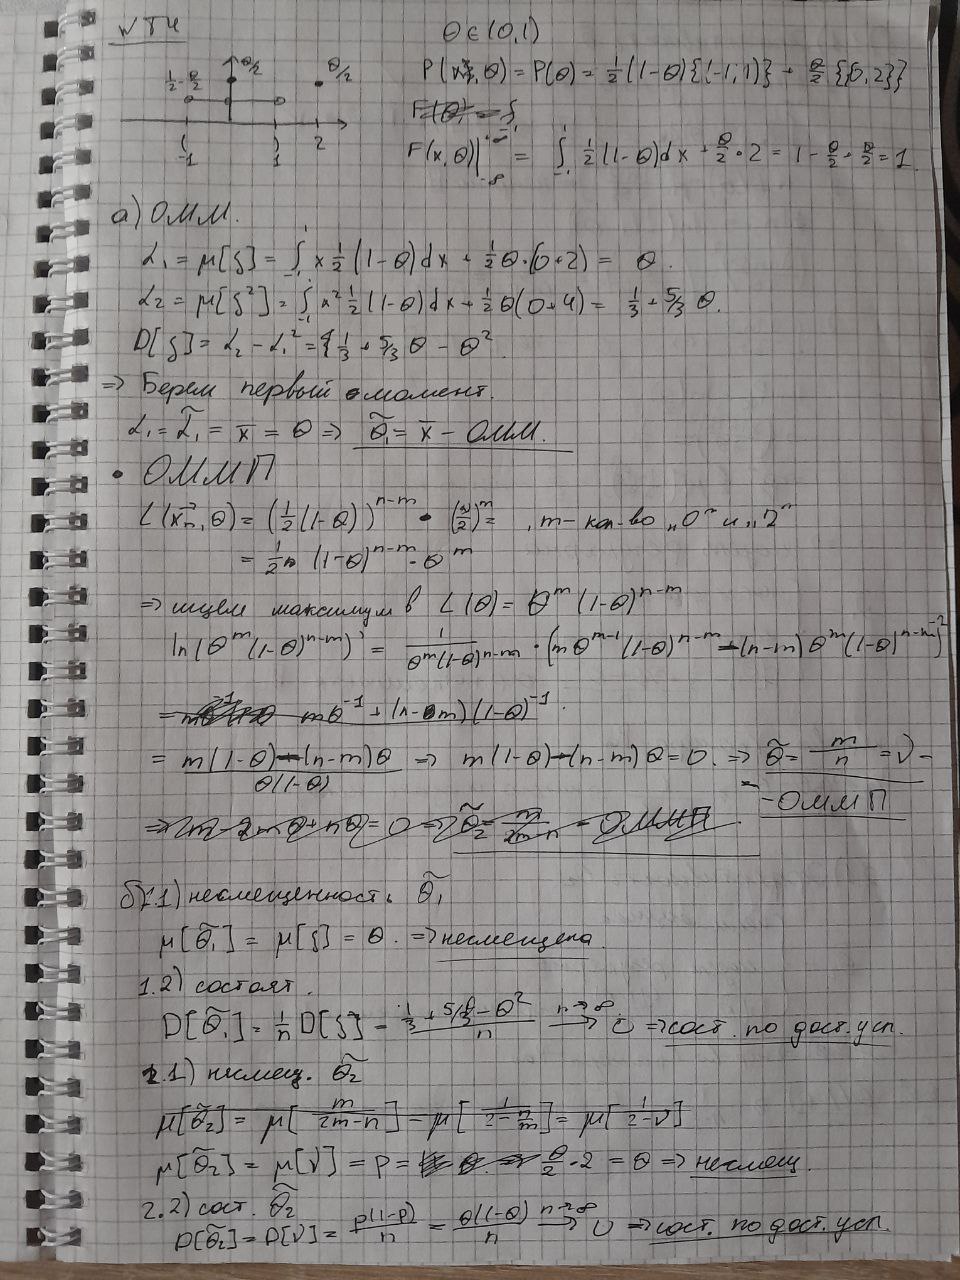 √T4
θ∈(0,1)
1/2-θ/2 θ/2 θ/2
-1 1 2
P(x, θ) = P(θ) = 1/2(1-θ){(-1,1)} + θ/2 {{0,2}}
F(x,θ)|_{-∞}^{+∞} = ∫_{-1}^{1} 1/2(1-θ)dx + θ/2·2 = 1-θ/2+θ/2=1.
а) ОММ.
α₁ = μ[ξ] = ∫_{-1}^{1} x 1/2(1-θ)dx + 1/2θ·(0+2) = θ.
α₂ = μ[ξ²] = ∫_{-1}^{1} x² 1/2(1-θ)dx + 1/2θ(0+4) = 1/3 + 5/3 θ.
D[ξ] = α₂ - α₁² = 1/3 + 5/3 θ - θ².
=> Берем первый момент.
α₁ = α̃₁ = x̄ = θ => θ̃₁ = x̄ - ОММ.
• ОММП
L(x⃗n, θ) = (1/2(1-θ))^{n-m} · (θ/2)^m = , m - кол-во "0" и "2"
= 1/2n (1-θ)^{n-m} · θ^m
=> ищем максимум в L(θ) = θ^m (1-θ)^{n-m}
ln(θ^m(1-θ)^{n-m})' = 1/(θ^m(1-θ)^{n-m}) · (mθ^{m-1}(1-θ)^{n-m} - (n-m)θ^m(1-θ)^{n-m-2})
= mθ^{-1} + (n-m)(1-θ)^{-1}.
= (m(1-θ)-(n-m)θ)/(θ(1-θ)) => m(1-θ)-(n-m)θ=0. => θ̃ = m/n = ν -
- ОММП
=> 2m-2mθ+nθ=0 => θ̃₂ = m/(2m-n) - ОММП.
б) 1.1) несмещенность θ̃₁
μ[θ̃₁] = μ[ξ] = θ. => несмещена.
1.2) состоят.
D[θ̃₁] = 1/n D[ξ] = (1/3 + 5/3θ - θ²)/n →(n→∞) 0 => сост. по дост. усл.
2.1) несмещ. θ̃₂
μ[θ̃₂] = μ[m/(2m-n)] = μ[1/(2-n/m)] = μ[1/(2-ν)]
μ[θ̃₂] = μ[ν] = p = θ/2·2 = θ => несмещ.
2.2) сост. θ̃₂
D[θ̃₂] = D[ν] = p(1-p)/n = θ(1-θ)/n →(n→∞) 0 => сост. по дост. усл.